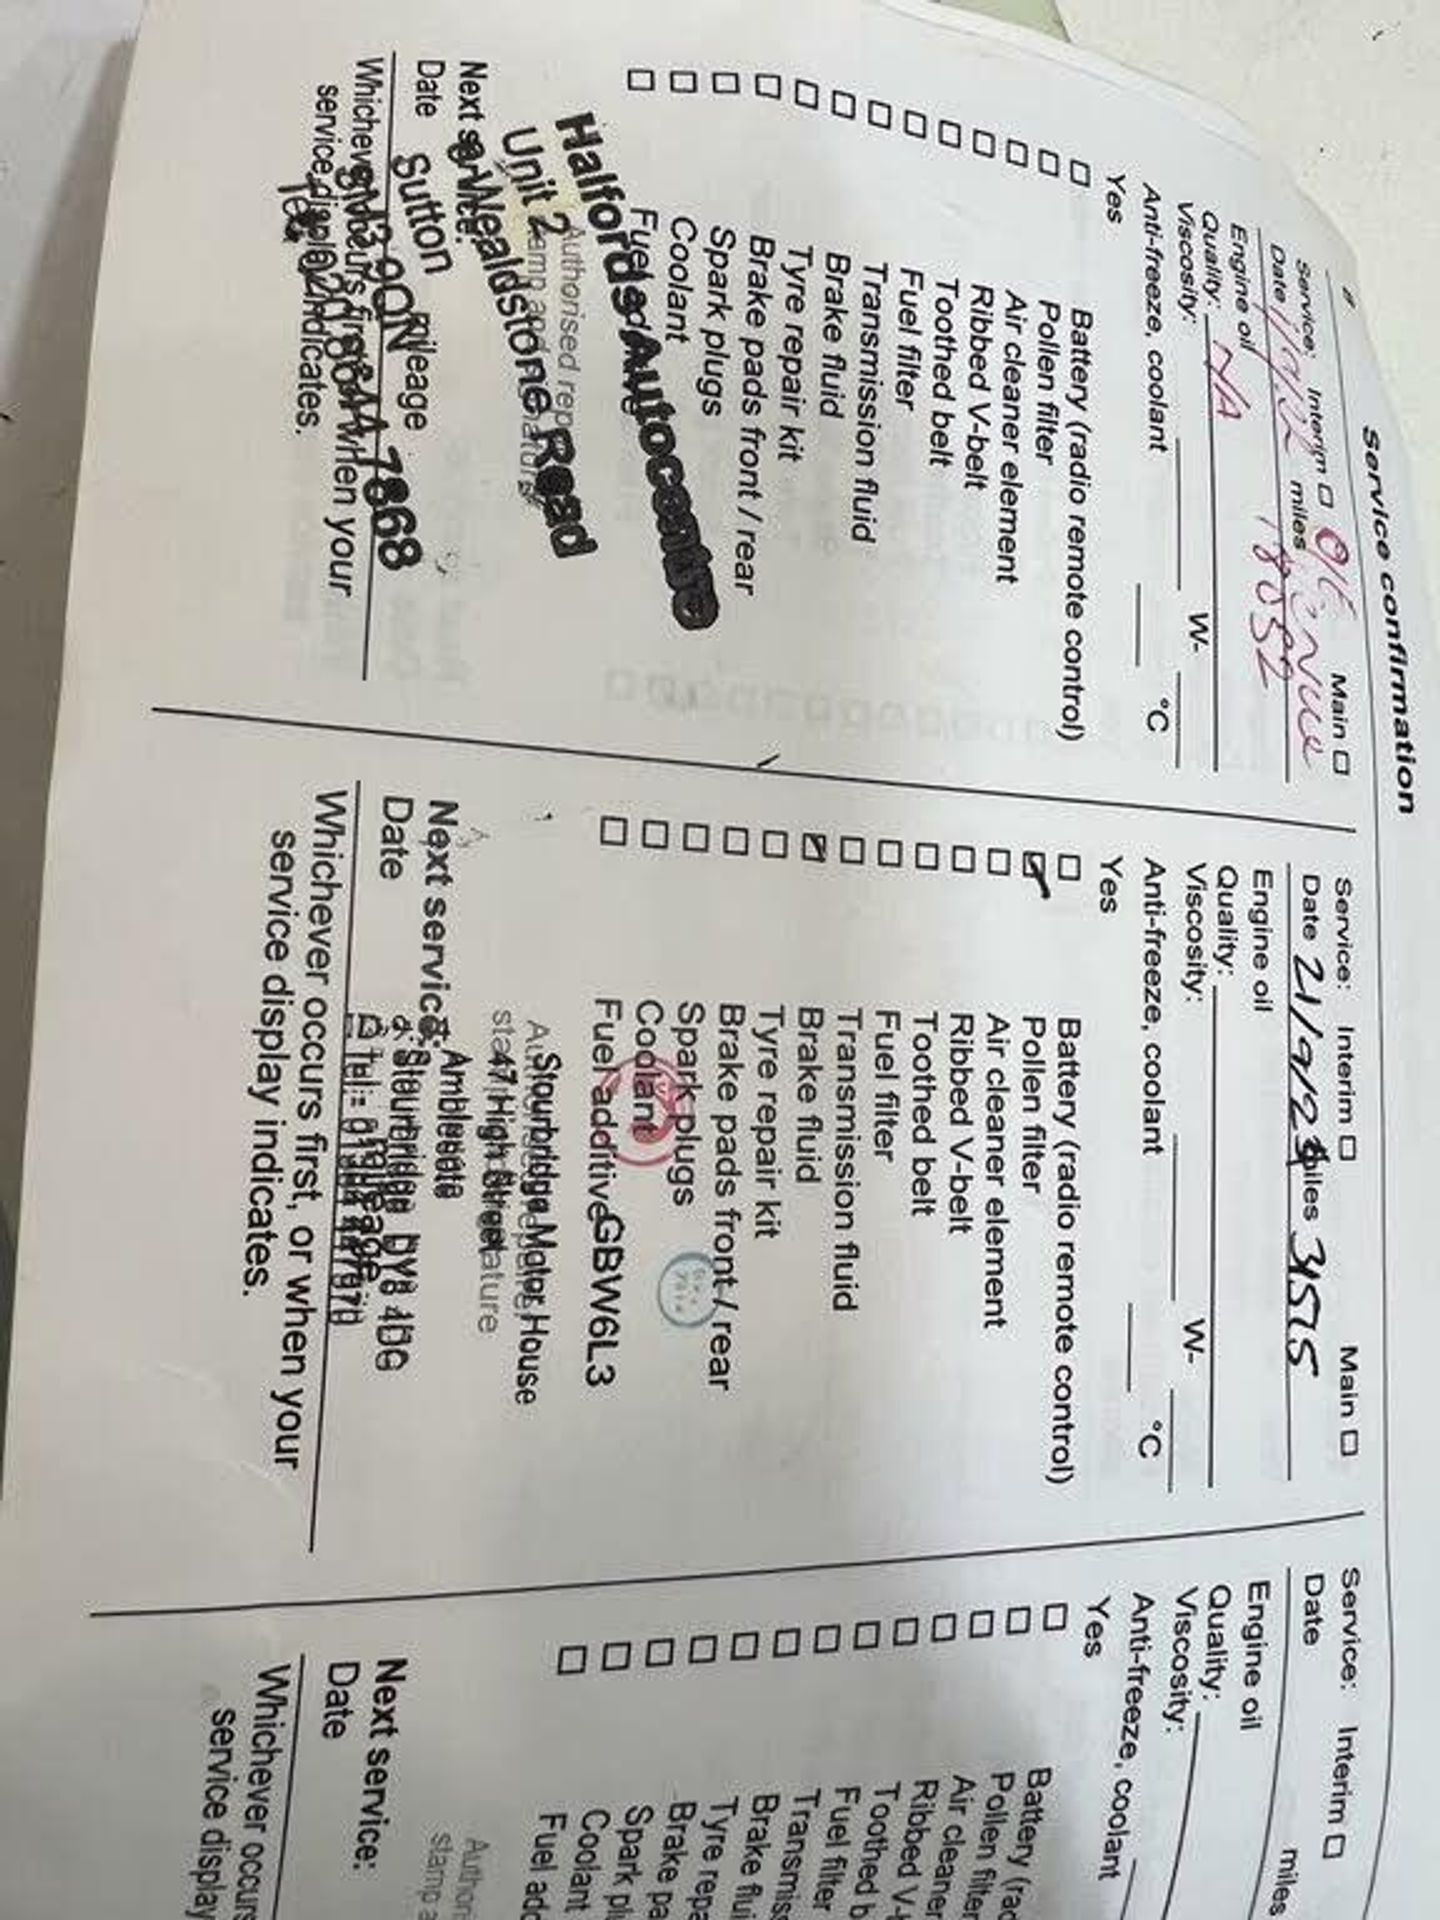 Service confirmation
Service: Interim Main
Date miles 18052
Engine oil
Quality: N/A
Viscosity: W-
Anti-freeze, coolant °C
Yes
Battery (radio remote control)
Pollen filter
Air cleaner element
Ribbed V-belt
Toothed belt
Fuel filter
Transmission fluid
Brake fluid
Tyre repair kit
Brake pads front / rear
Spark plugs
Coolant
Fuel additive
Halfords Autocentre
Unit 2
Wealdstone Road
Sutton
SM3 9QN
Next service:
Date mileage
Whichever occurs first, or when your
service display indicates.
Service: Interim Main
Date miles
Engine oil
Quality:
Viscosity: W-
Anti-freeze, coolant °C
Yes
Battery (radio remote control)
Pollen filter
Air cleaner element
Ribbed V-belt
Toothed belt
Fuel filter
Transmission fluid
Brake fluid
Tyre repair kit
Brake pads front / rear
Spark plugs
Coolant
Fuel additive GBW6L3
Stourbridge Motor House
47 High Street
Amblecote
Stourbridge
Next service:
Date mileage
Whichever occurs first, or when your
service display indicates.
Service: Interim
Date miles
Engine oil
Quality:
Viscosity:
Anti-freeze, coolant
Yes
Battery (rad
Pollen filter
Air cleaner
Ribbed V-
Toothed b
Fuel filter
Transmiss
Brake flui
Tyre repa
Brake pa
Spark plu
Coolant
Fuel add
Authori
stamp a
Next service:
Date
Whichever occurs
service display